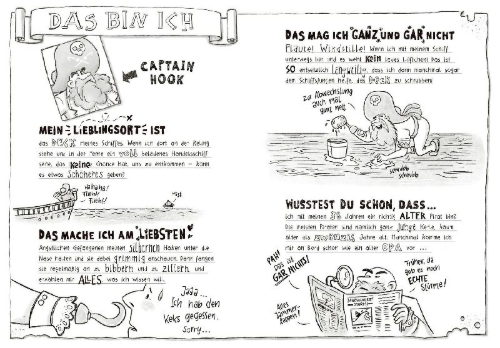 DAS BIN ICH
CAPTAIN
HOOK
MEIN LIEBLINGSORT IST
das DECK meines Schiffes. Wenn ich dort an der Reling
stehe und in der Ferne ein voll beladenes Handelsschiff
sehe, das keine Chance hat, uns zu entkommen – kann
es etwas Schöneres geben?
DAS MACHE ICH AM LIEBSTEN
Ängstlichen Gefangenen meinen silbernen Haken unter die
Nase halten und sie dabei grimmig anschauen. Dann fangen
sie regelmäßig an zu bibbern und zu zittern und
erzählen mir ALLES, was ich wissen will.
Jaaa...
Ich hab den
Keks gegessen.
Sorry...
DAS MAG ICH GANZ UND GAR NICHT
Flaute! Windstille! Wenn ich mit meinem Schiff
unterwegs bin und es weht kein laues Lüftchen, das ist
SO entsetzlich langweilig, dass ich dann manchmal sogar
den Schiffsjungen helfe, das Deck zu schrubben!
Zur Abwechslung
auch mal
ganz nett
schrubb
schrubb
WUSSTEST DU SCHON, DASS...
ich mit meinen Jahren ein richtig ALTER Pirat bin?
Die meisten Piraten sind nämlich ganz junge Kerle, kaum
älter als Jahre alt. Manchmal komme ich
mir an Bord schon wie ein alter OPA vor...
PAH!
Das ist
GAR NICHTS!
Früher, da
gab es noch
ECHTE
Stürme!
Alles
Jammer-
lappen!